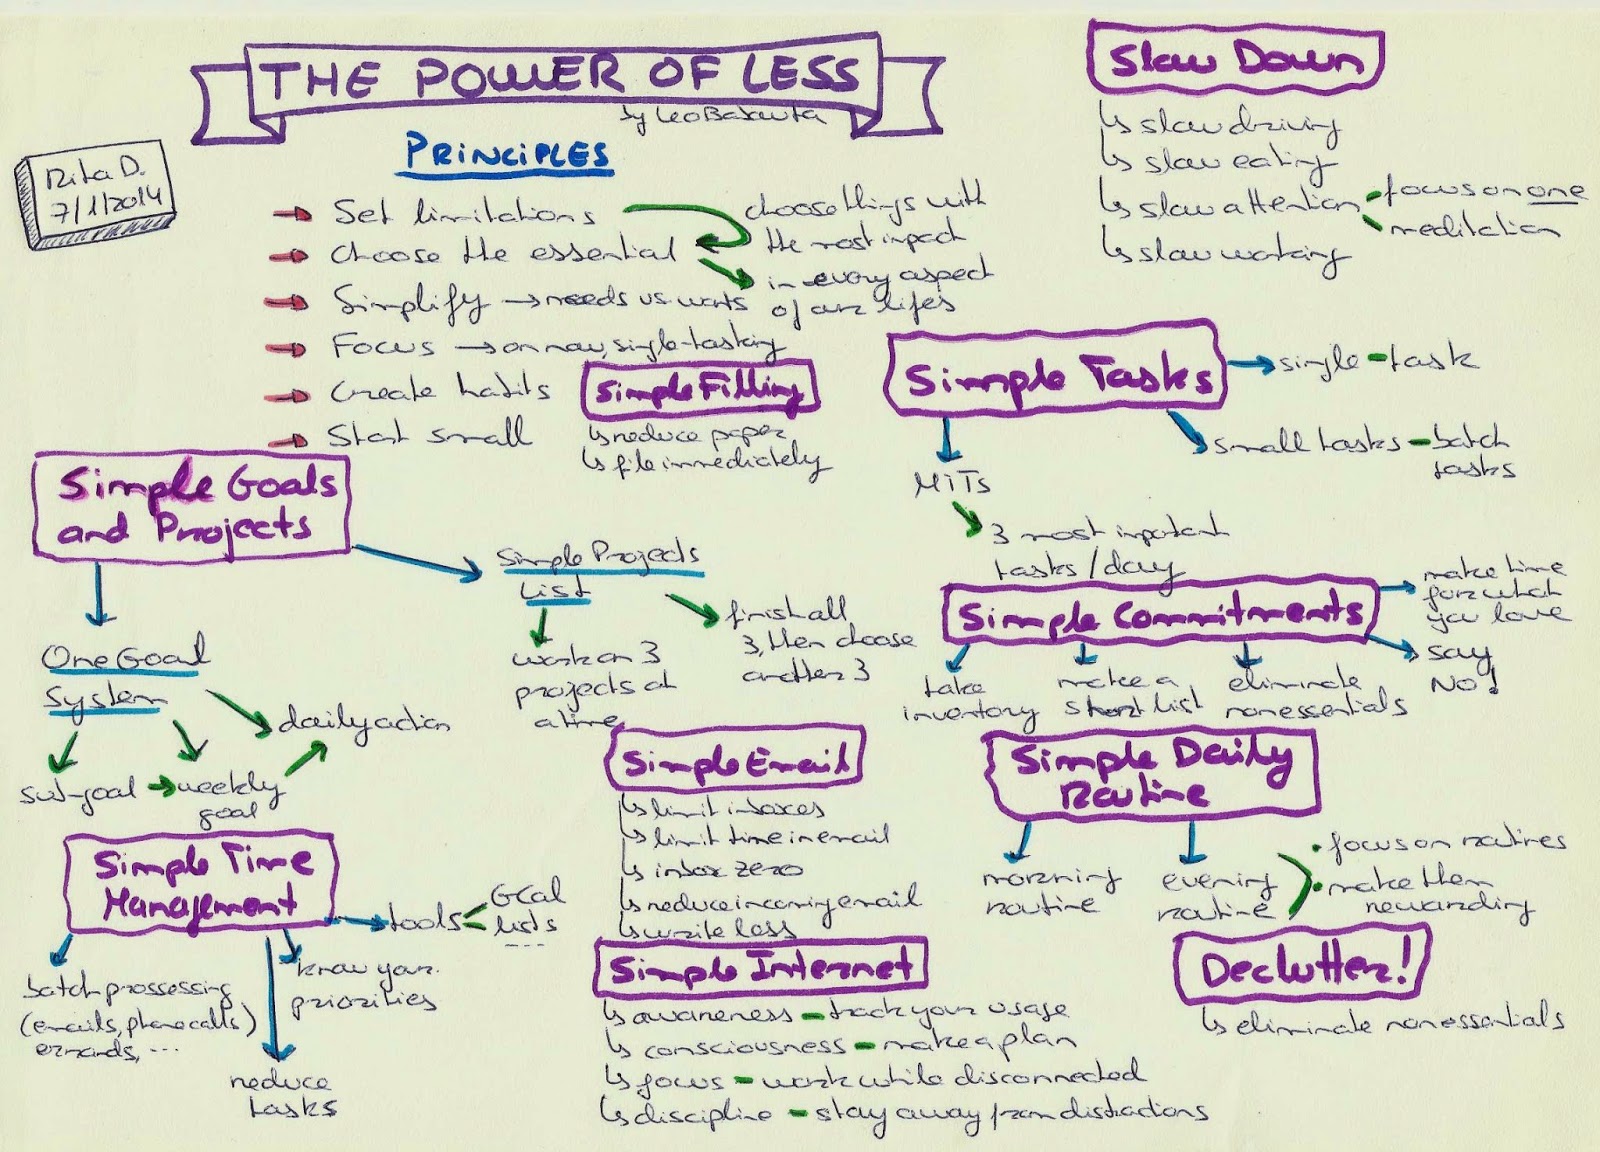 THE POWER OF LESS
by Leo Babauta
Rita D.
7/1/2014
PRINCIPLES
Set limitations
Choose the essential
choose things with
the most impact
in every aspect
of our lifes
Simplify → needs vs. wants
Focus → on now, single-tasking
Create habits
Start small
Slow Down
slow driving
slow eating
slow attention
focus on one
meditation
slow working
Simple Filling
reduce paper
file immediately
Simple Tasks
single-task
small tasks - batch
tasks
MITs
3 most important
tasks/day
Simple Goals
and Projects
One Goal
System
sub-goal
weekly
goal
daily action
Simple Projects
List
work on 3
projects at
a time
finish all
3, then choose
another 3
Simple Commitments
make time
for what
you love
say
NO!
take
inventory
make a
short list
eliminate
nonessentials
Simple Email
limit inboxes
limit time in email
inbox zero
reduce incoming email
write less
Simple Daily
Routine
morning
routine
evening
routine
• focus on routines
• make them
rewarding
Simple Time
Management
tools
GCal
lists
...
know your
priorities
batch prossessing
(emails, phone calls)
errands, ...
reduce
tasks
Simple Internet
awareness - track your usage
consciousness - make a plan
focus - work while disconnected
discipline - stay away from distractions
Declutter!
eliminate nonessentials